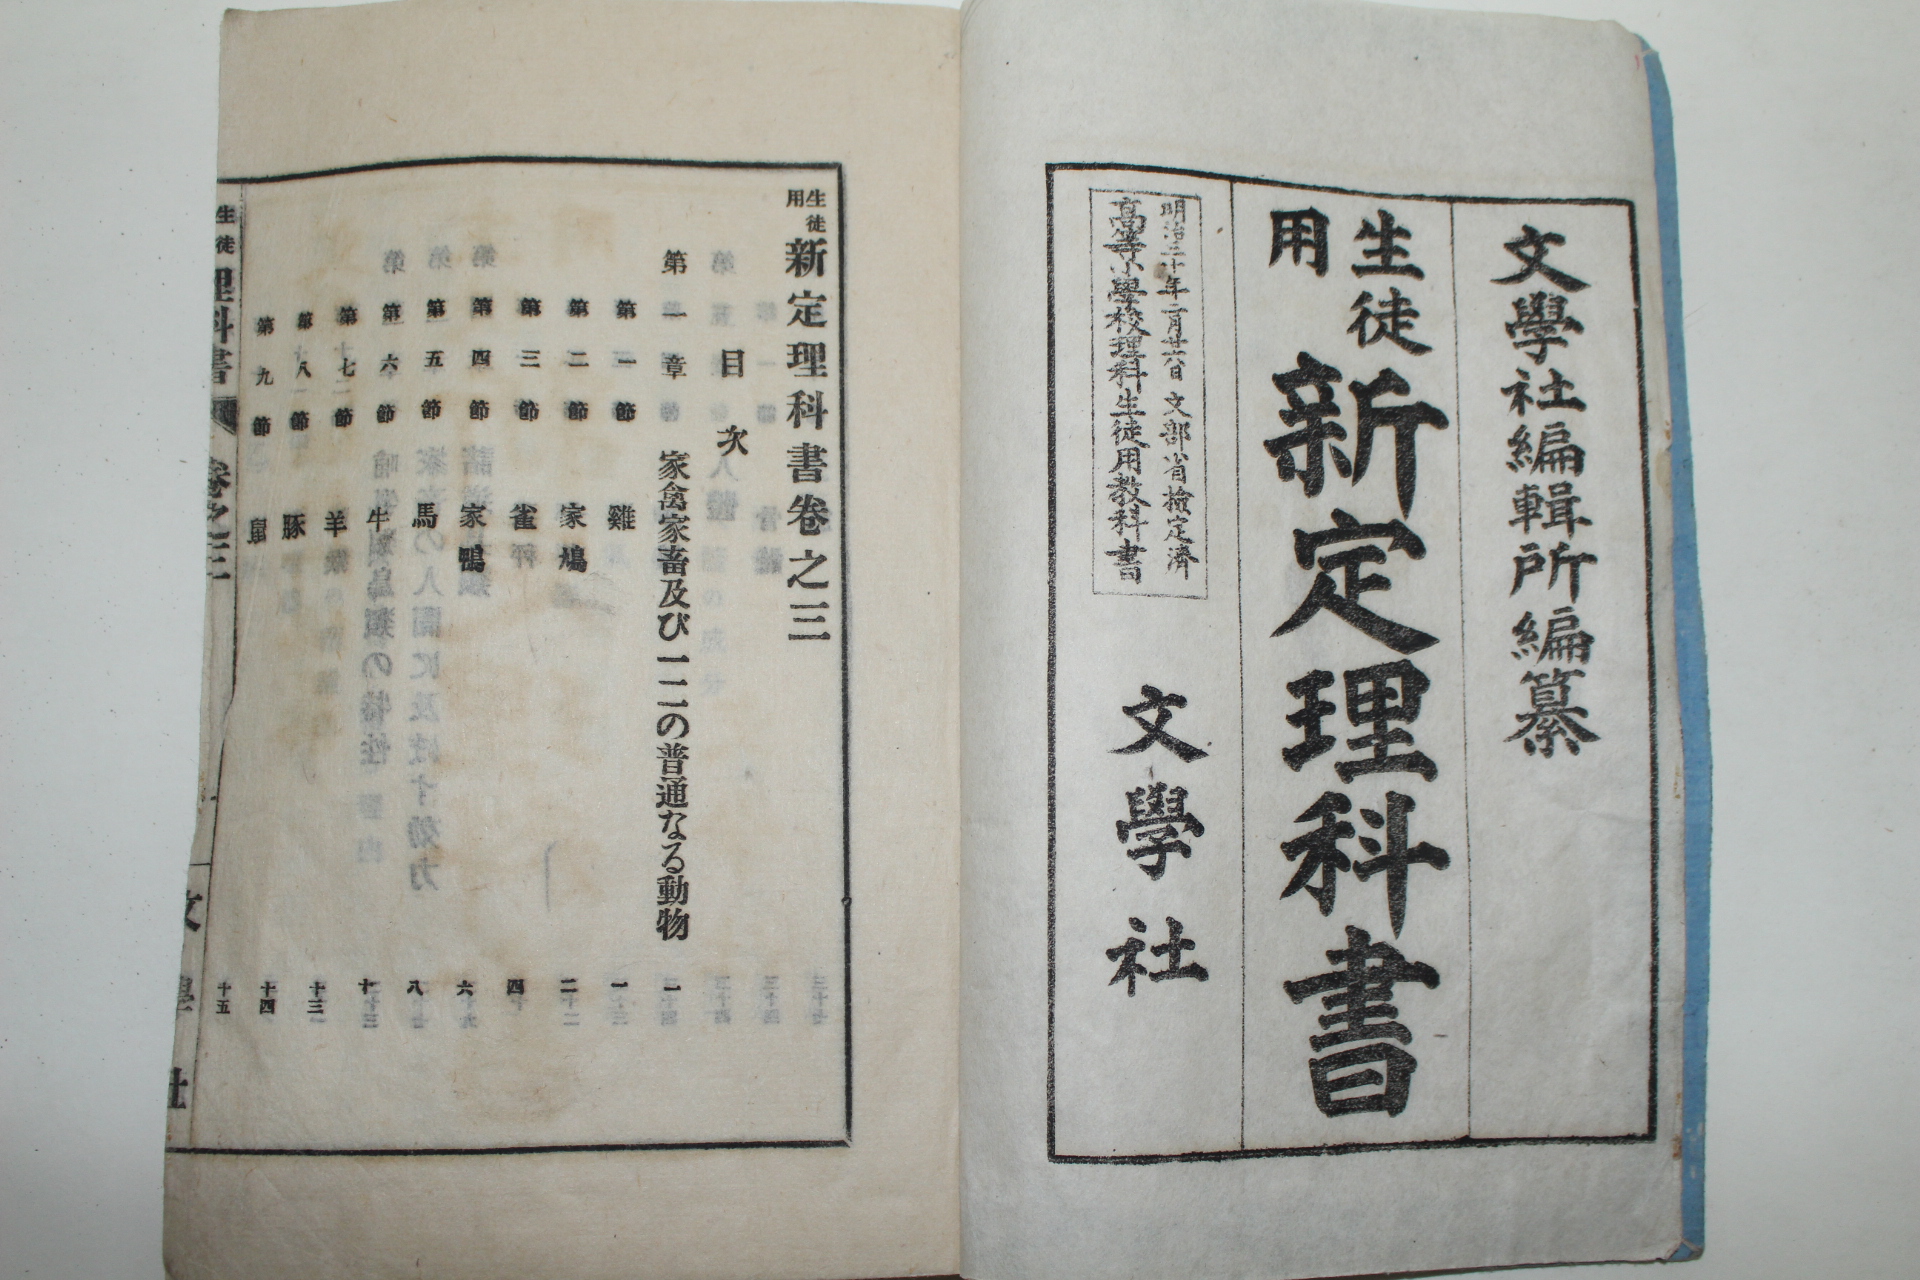 文學社編輯所編纂
生徒用 新定理科書
明治三十年二月廿六日文部省檢定濟
高等小學校理科生徒用教科書
文學社
生徒用 新定理科書卷之三
目次
第一章 家禽家畜及び一二の普通なる動物 一
第一節 雞 一
第二節 家鳩 二
第三節 雀 四
第四節 家鴨 六
第五節 馬 八
第六節 牛 十
第七節 羊 十三
第八節 豚 十四
第九節 鼠 十五
生徒 理科書 卷之三
一
文學社